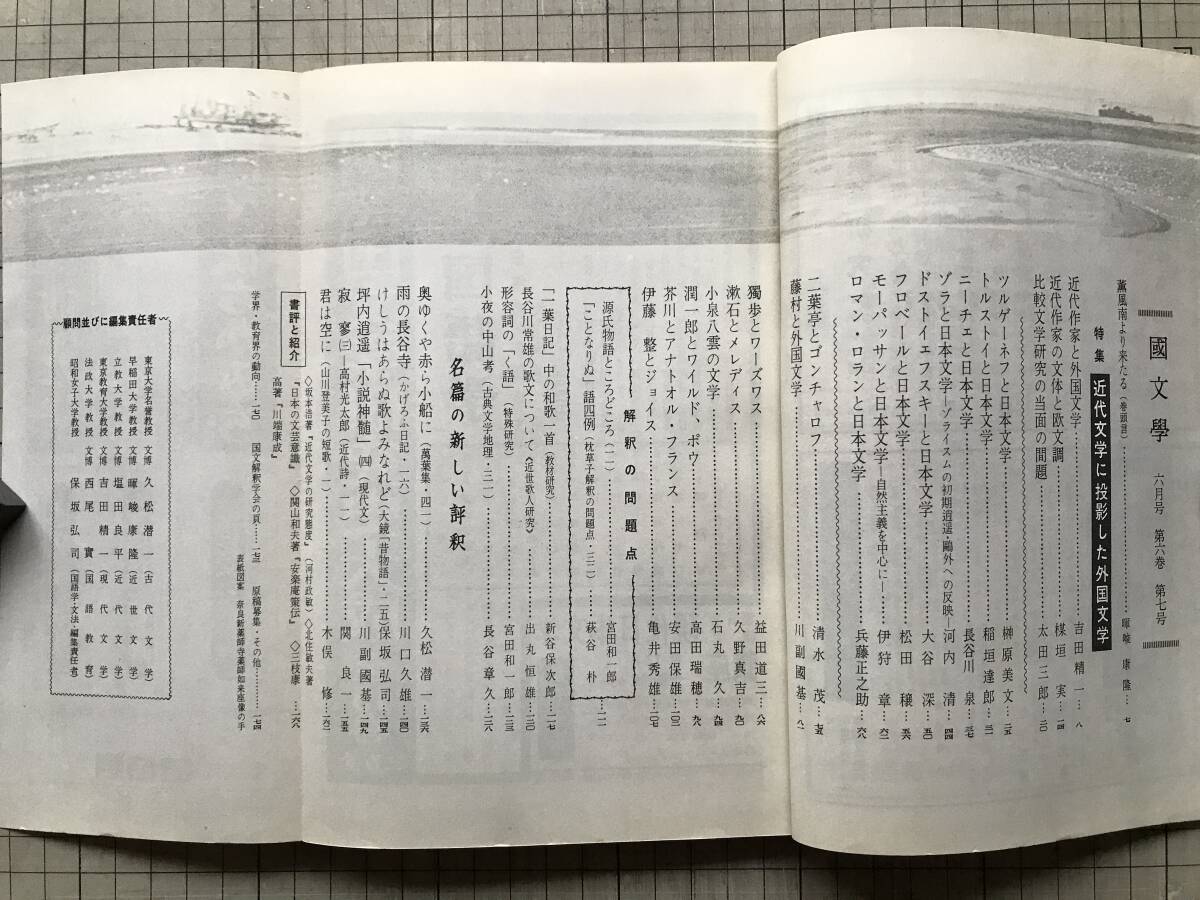 國文學 六月号 第六巻 第七号
薫風南より来たる(巻頭言)………暉峻康隆…七
特集 近代文学に投影した外国文学
近代作家と外国文学………吉田精一…八
近代作家の文体と欧文調………楳垣実…一四
比較文学研究の当面の問題………太田三郎…二〇
ツルゲーネフと日本文学………榊原美文…二五
トルストイと日本文学………稲垣達郎…三一
ニーチェと日本文学………長谷川泉…三七
ゾラと日本文学―ゾライスムの初期逍遥・鷗外への反映―河内清…四四
ドストイエフスキーと日本文学………大谷深…五〇
フロベールと日本文学………松田穣…五六
モーパッサンと日本文学―自然主義を中心に―…伊狩章…六二
ロマン・ロランと日本文学………兵藤正之助…六八
二葉亭とゴンチャロフ………清水茂…七五
藤村と外国文学………川副國基…八一
獨歩とワーズワス………益田道三…八六
漱石とメレディス………久野真吉…九〇
小泉八雲の文学………石丸久…九四
潤一郎とワイルド、ポウ………高田瑞穂…九九
芥川とアナトオル・フランス………安田保雄…一〇三
伊藤整とジョイス………亀井秀雄…一〇七
解釈の問題点
源氏物語ところどころ(二)………宮田和一郎
「ことなりぬ」語四例(枕草子解釈の問題点・三二)………萩谷朴…一一一
「一葉日記」中の和歌一首(教材研究)………新谷保次郎…一一七
長谷川常雄の歌文について《近世歌人研究》………出丸恒雄…一三〇
形容詞の「く語」(特殊研究)………宮田和一郎…一三三
小夜の中山考(古典文学地理・三一)………長谷章久…一二六
名篇の新しい評釈
奥ゆくや赤ら小船に(萬葉集・四一)………久松潜一…一三六
雨の長谷寺(かげろふ日記・一六)………川口久雄…一四〇
けしうはあらぬ歌よみなれど(大鏡「昔物語」・二五)保坂弘司…一四五
坪内逍遥「小説神髄」(四)(現代文)………川副國基…一四九
寂寥(三)―高村光太郎(近代詩・一一)………関良一…一五五
君は空に(山川登美子の短歌・一)………木俣修…一六二
書評と紹介
◇坂本浩著『近代文学の研究態度』(河村政敏)◇北住敏夫著
『日本の文芸意識』◇関山和夫著『安楽庵策伝』◇三枝康
高著『川端康成』………一六八
学界・教育界の動向……一七〇 国文解釈学会の頁……一七三 原稿募集・その他………一七四
表紙図案 奈良新薬師寺薬師如来座像の手
顧問並びに編集責任者
東京大学名誉教授 文博 久松潜一(古代文学)
早稲田大学教授 文博 暉峻康隆(近世文学)
立教大学教授 文博 塩田良平(近代文学)
東京教育大学教授 文博 吉田精一(現代文学)
法政大学教授 文博 西尾實(国語教育)
昭和女子大学教授 保坂弘司(国語学・文法・編集責任者)